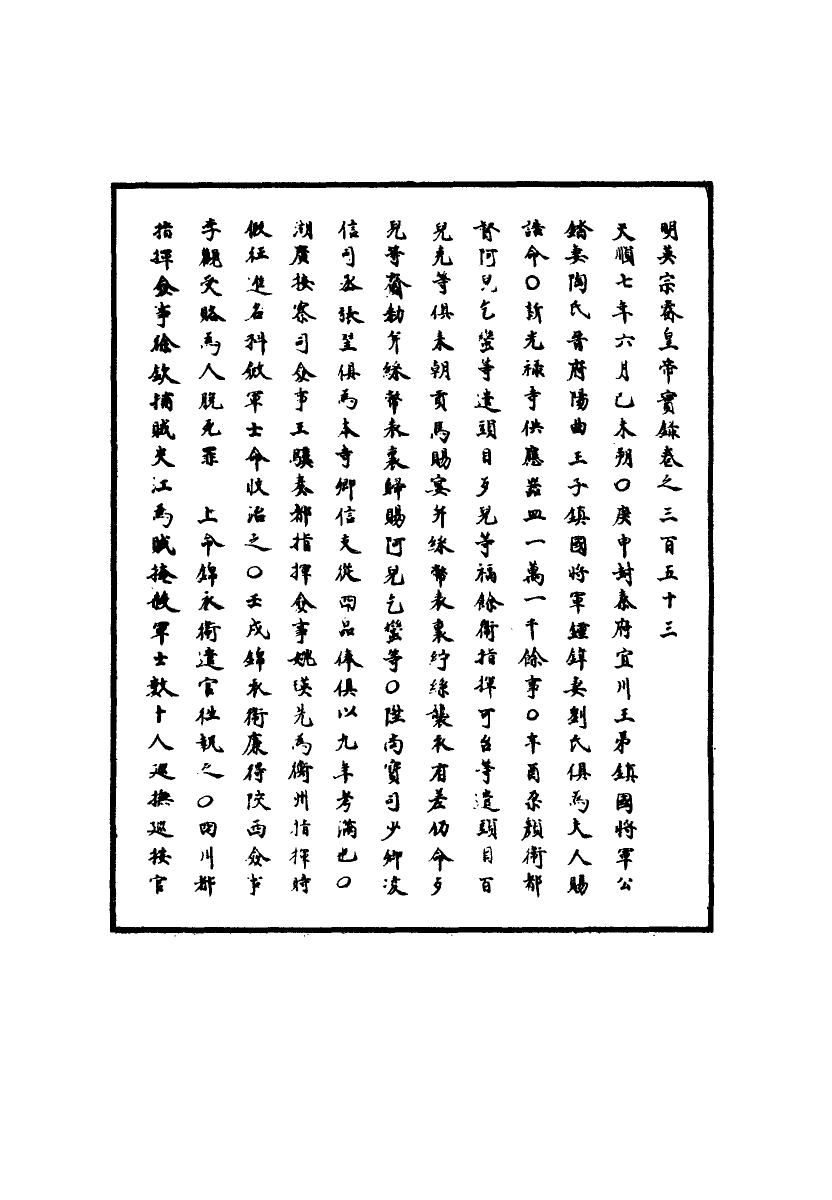 明英宗睿皇帝實錄卷之三百五十三
天順七年六月己未朔○庚申封秦府宜川王弟鎮國將軍公
錯妻陶氏晉府陽曲王子鎮國將軍鍾鍏妻劉氏俱為夫人賜
誥命○新光祿寺供應器皿一萬一千餘事○辛酉朵顏衛都
督阿兒乞蠻等遣頭目歹兒等福餘衛指揮可台等遣頭目百
兒克等俱來朝貢馬賜宴并綵幣表裏紵絲襲衣有差仍命歹
兒等齎勑并綵幣表裏歸賜阿兒乞蠻等○陞尚寶司少卿凌
信司丞張堃俱為本寺卿信支從四品俸俱以九年考滿也○
湖廣按察司僉事王驥奏都指揮僉事姚瑛先為衡州指揮時
假征進名科斂軍士命收治之○壬戌錦衣衛廉得陝西僉事
李觀受賂為人脫死罪　上命錦衣衛遣官往執之○四川都
指揮僉事徐欽捕賊夾江為賊掩殺軍士數十人巡撫巡按官